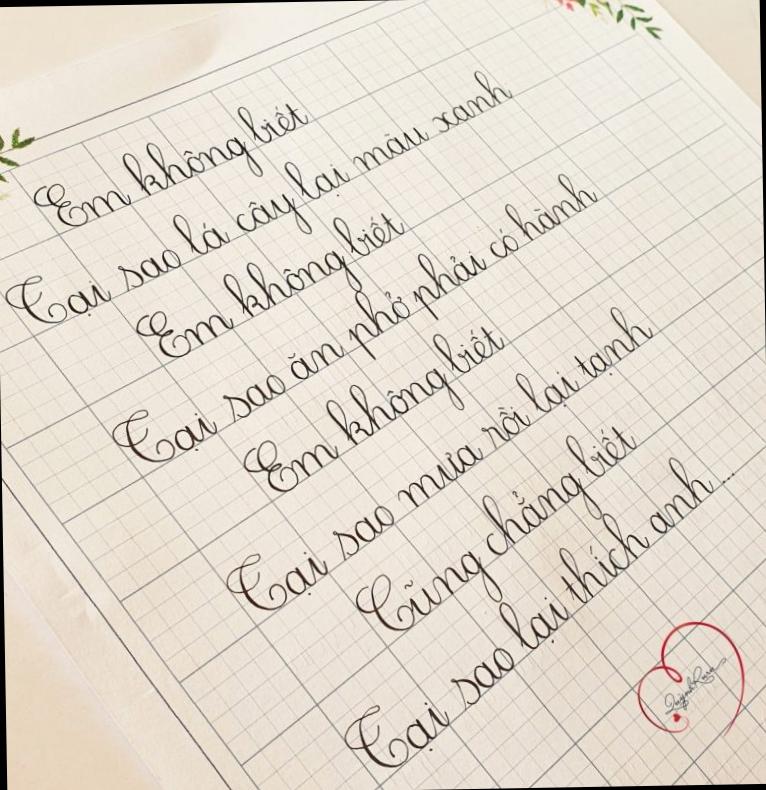 Em không biết
Tại sao lá cây lại màu xanh
Em không biết
Tại sao ăn phở phải có hành
Em không biết
Tại sao mưa rồi lại tạnh
Cũng chẳng biết
Tại sao lại thích anh...